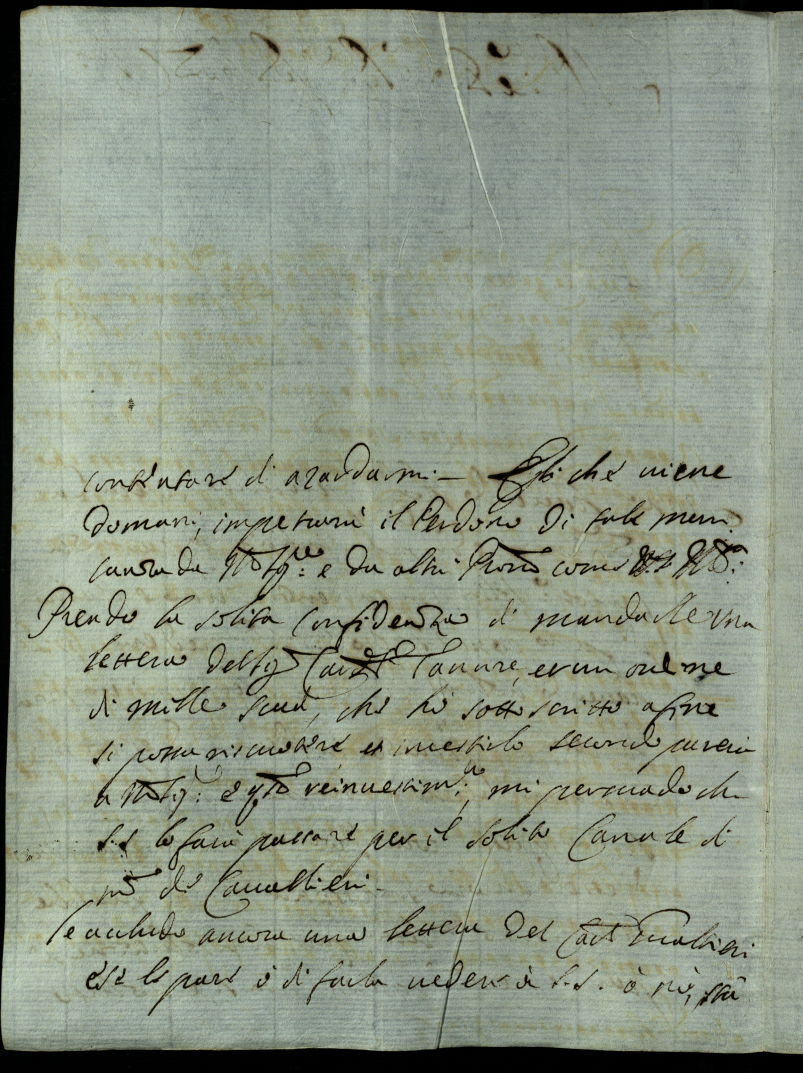 contentare di azardarmi.— Egli che viene
Domani, impetrarà il Perdono di tale man
canza da e da altri come
Prendo la solita Confidenza di mandarLe una
lettera del Card.l Tanare, et un ordine
di mille scudi, che hò sottoscritto afine
si possa riscuotere et investirlo secondo parerà
a e reinvestim.to, mi persuado che
S.S. lo farà passare per il solito Canale di
de Cavallieri.
Le accludo ancora una lettera del Card. Gualtieri
e se le pare ò di farla vedere à S.S. ò nò, stà